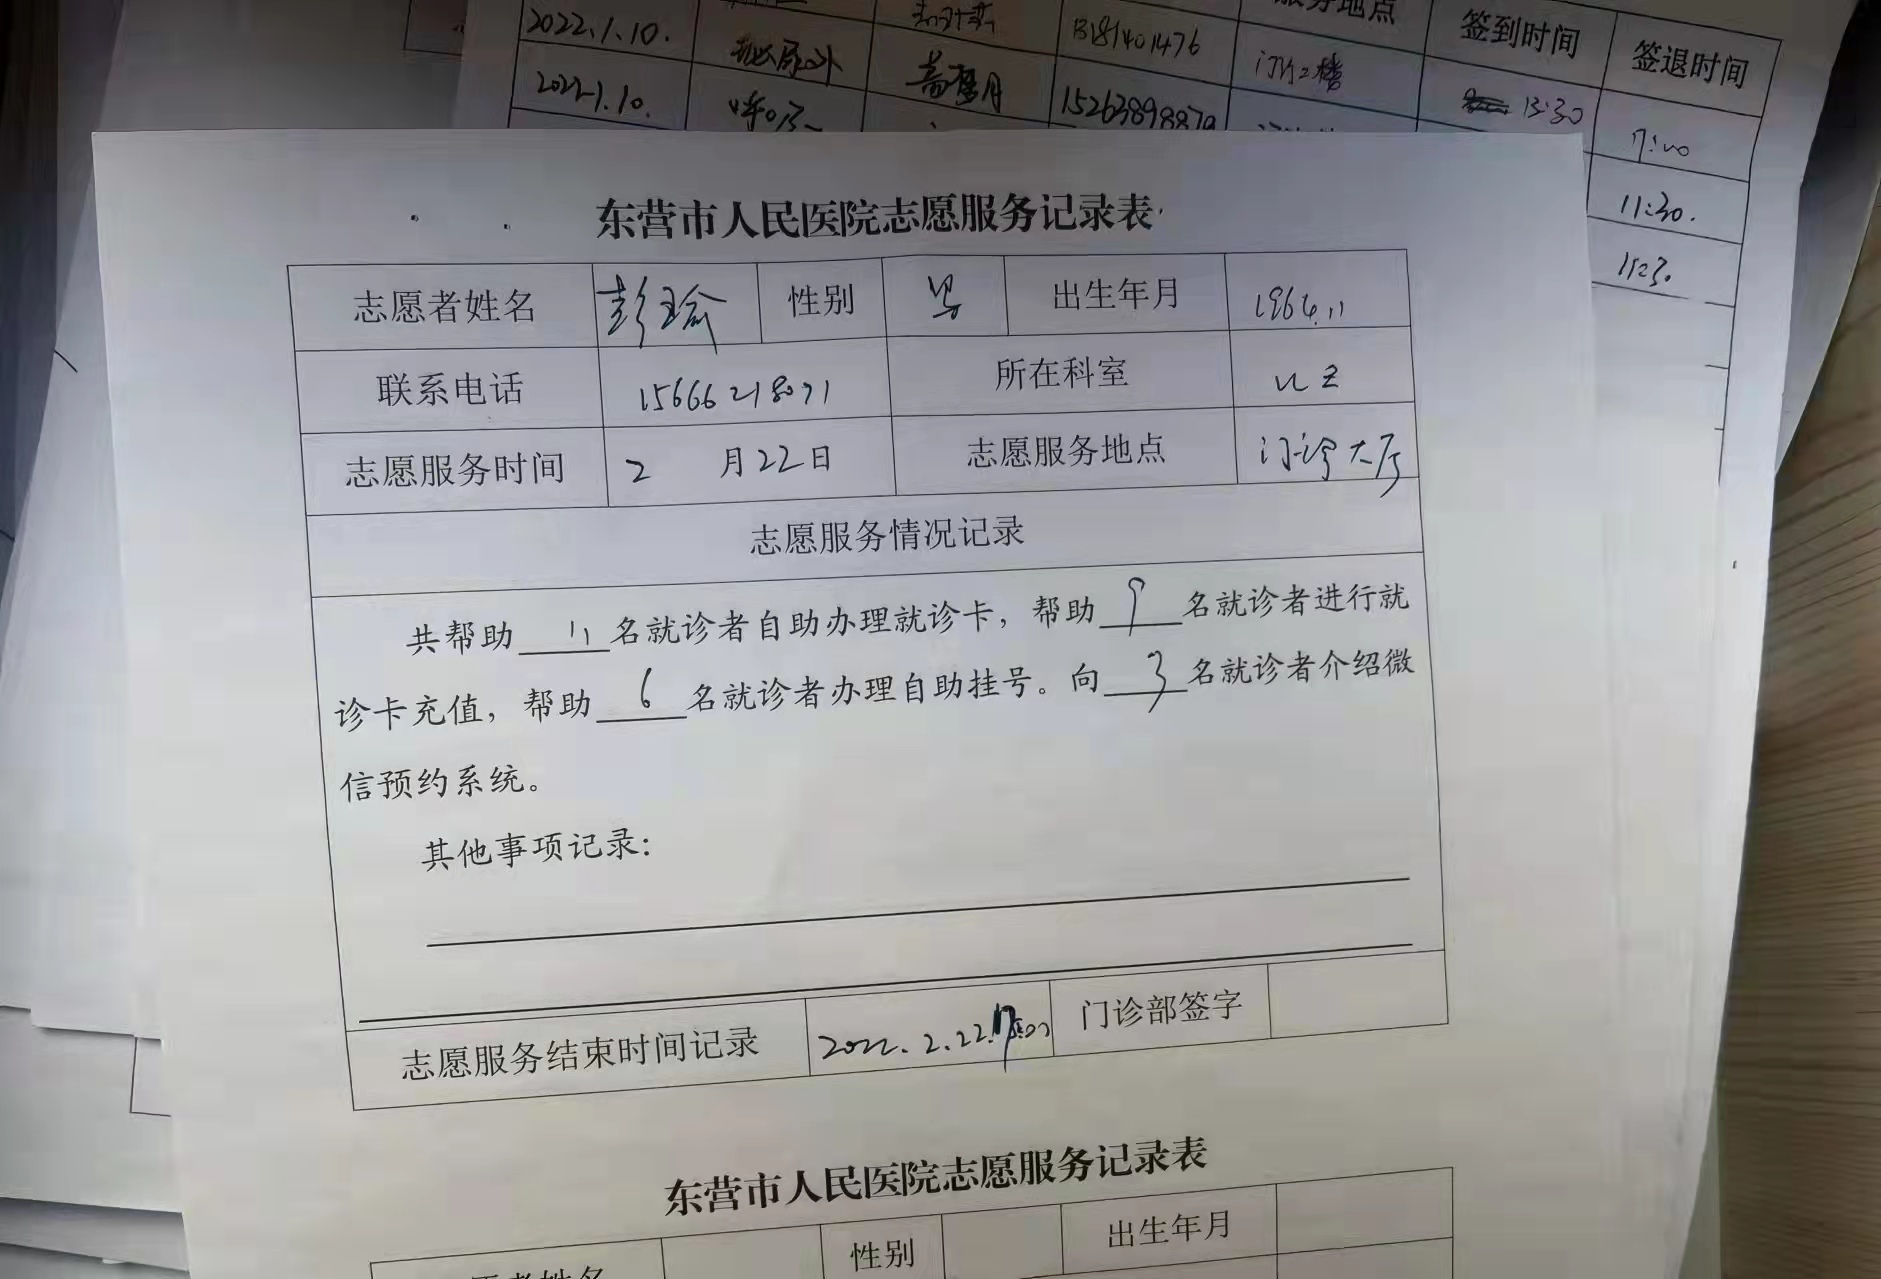 服务地点 签到时间 签退时间
2022.1.10. 13181401476 门诊2楼 13:30 17:00
2022.1.10. 15263898870 11:30.
11:30
东营市人民医院志愿服务记录表
志愿者姓名 彭瑜 性别 男 出生年月 1964.11
联系电话 15666218071 所在科室
志愿服务时间 2 月22日 志愿服务地点 门诊大厅
志愿服务情况记录
共帮助 11 名就诊者自助办理就诊卡，帮助 9 名就诊者进行就
诊卡充值，帮助 6 名就诊者办理自助挂号。向 3 名就诊者介绍微
信预约系统。
其他事项记录：
志愿服务结束时间记录 2022.2.22. 门诊部签字
东营市人民医院志愿服务记录表
志愿者姓名 性别 出生年月